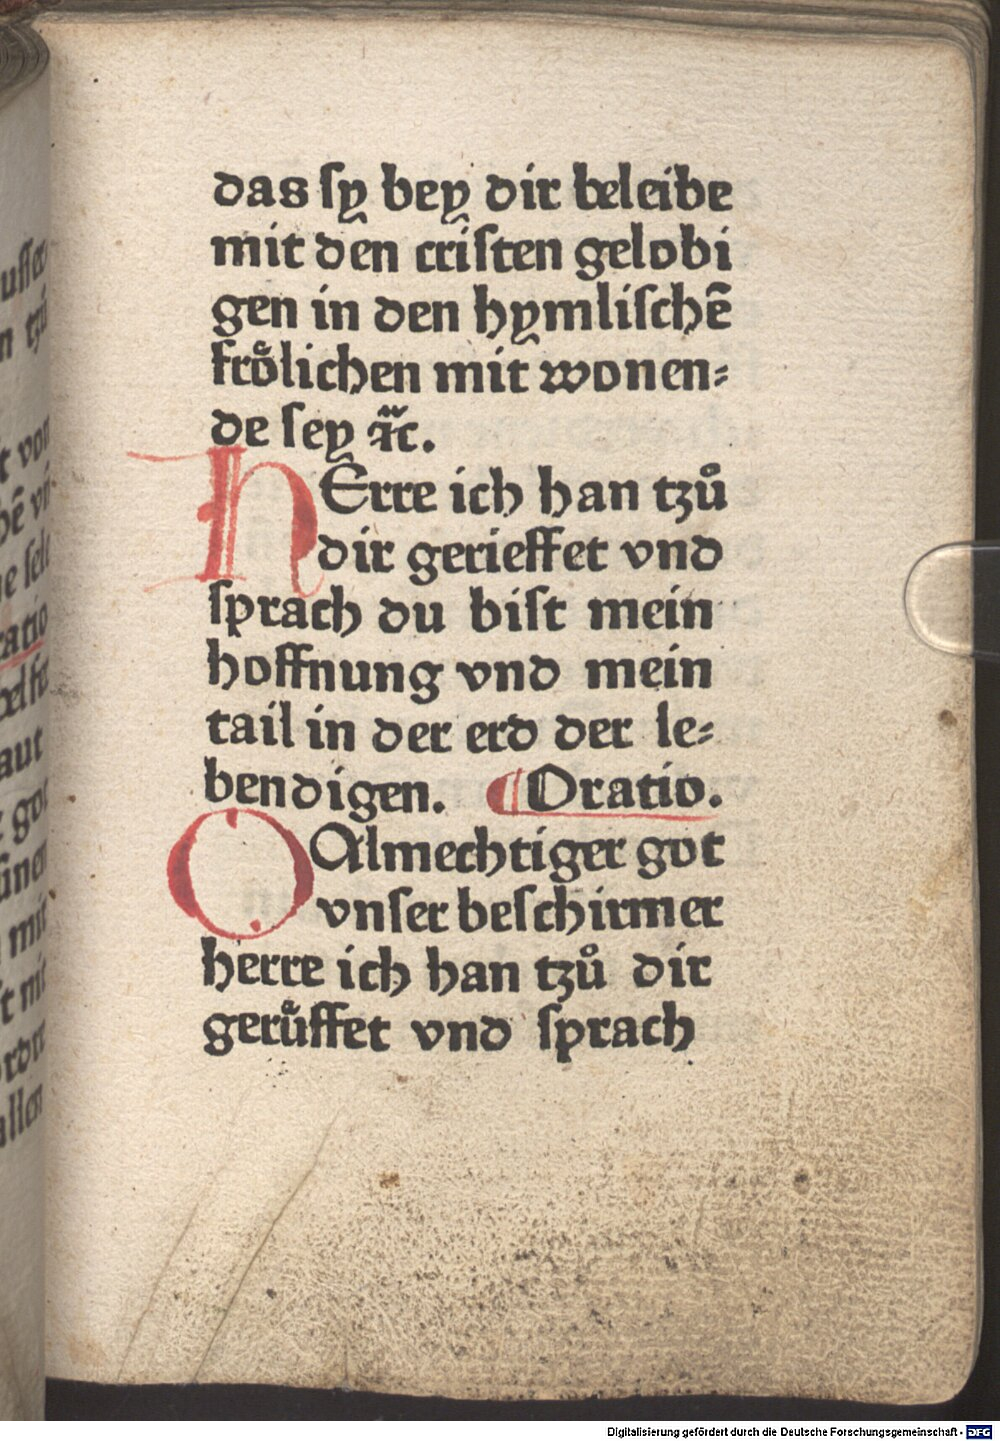 das ſy bey dir beleibe
mit den criſten gelobi
gen in den hymliſchē
froͤlichen mit wonen⸗
de ſey ⁊c̃.
HErre ich han tzuͦ
dir gerieffet vnd
ſprach du biſt mein
hoffnung vnd mein
tail in der erd der le⸗
bendigen. ¶Oratio.
O Almechtiger got
vnſer beſchirmer
herre ich han tzuͦ dir
geruͤffet vnd ſprach
Digitalisierung gefördert durch die Deutsche Forschungsgemeinschaft - DFG